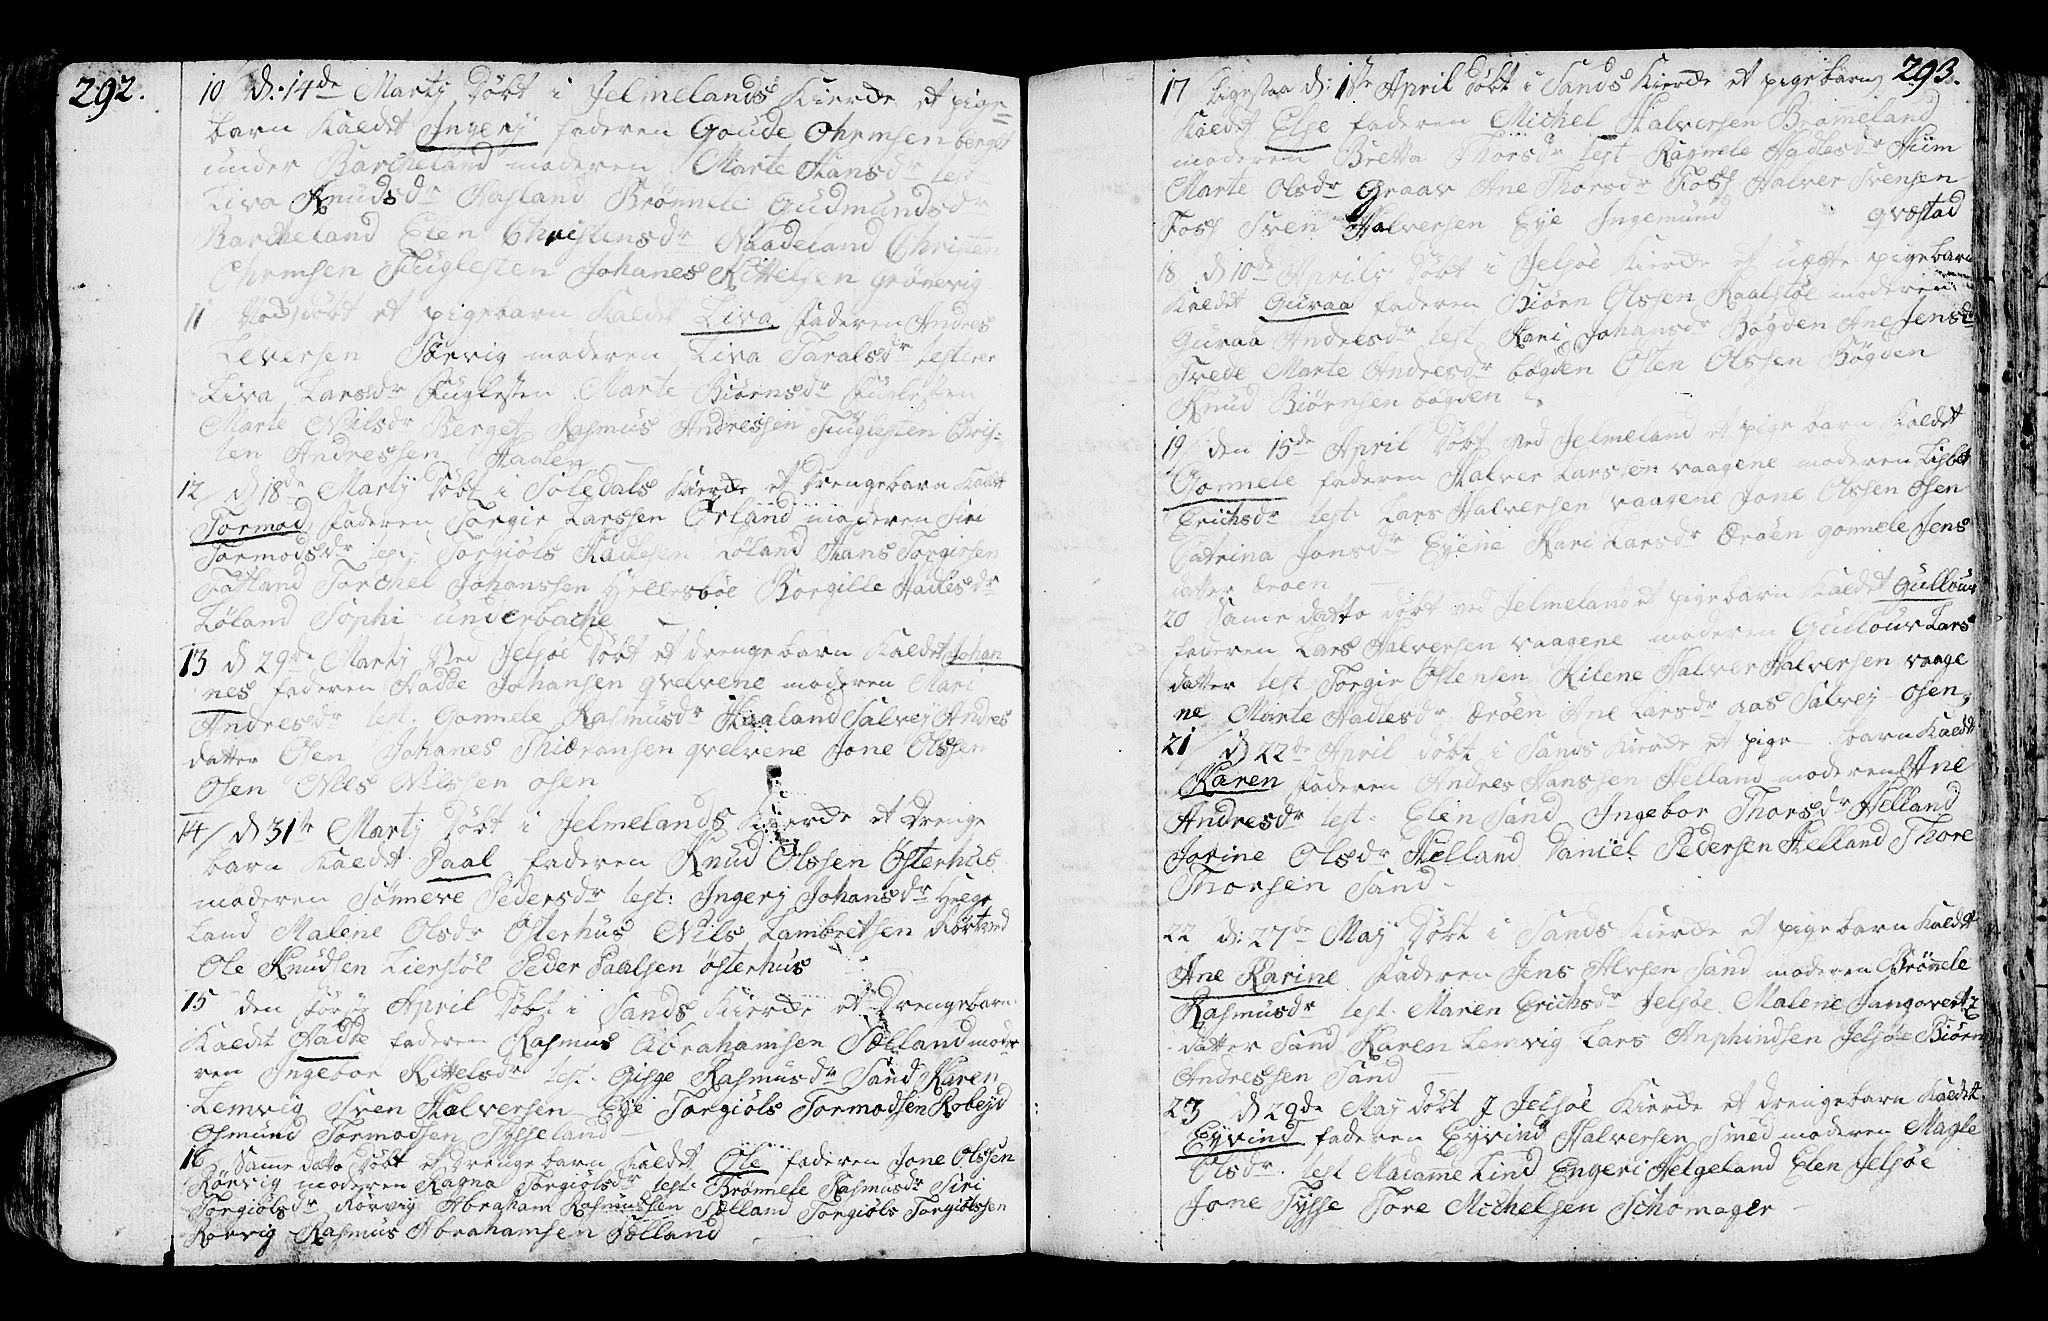 292.
10 D: 14de Martj Døbt i Jelmelands Kierde et pige
barn Kaldet Ingerj faderen Goude Ohrmsen berget
under Barcheland moderen Marte Hansdr test
Liva Knudsdr Aasland Brønnele Gudmundsdr
Barcheland Elen Christensdr Naadeland Christen
Ohrmsen Fuglesten Johanes Kittelsen grønevig
11 døbt et pigebarn Kaldet Liva faderen Andres
Leversen Sørvig moderen Liva Taralsdr testerer
Liva Larsdr Fuglesten Marte Biørnsdr Fuglesten
Marte Nilsdr Berget Rasmus Andressen Fuglesten Chris-
ten Andressen Haalen
12 / D 18de Martij Døbt i Soledals Kierde et Drengebarn Kaldet
Tormod faderen Torgir Larssen Erland moderen Siri
Tormodsdr test Torgiols Hadlesen Løland Hans Torgiosen
Fatland Torchel Johanssen Hyllesbøe Borgille Hadlesdr
Løland Sophi underbache
13 D 29de Martj Ved Jelsøe Døbt et drengebarn Kaldet Johan
nes faderen Hadde Johansen qvelvene moderen Mari
Andresdr test. Gonnele Rasmusdr Haaland Salvej Andres
datter Osen Johanes Thiæransen qvelvene Jone Olssen
Osen Nils Nilssen osen
14/ D 31te Martj Døbt i Jelmelands Kierde et Drenge
barn Kaldet Paal faderen Knud Olssen Østerhus
moderen Sønneve Pedersdr test: Ingerj Johansdr Helge
Land Malene Olsdr Østerhus Nils Lambretsen Kørtved
Ole Knudsen Lierstøl Peder Paalsen østerhus
15 den April Døbt i Sands Kierde et Drengebarn
Kaldet Hadle faderen Rasmus Abrahamsen Sælland mode
ren Ingebor Kittelsdr test. Gisge Rasmusdr Sand Karen
Lemvig Sven Halversen Eye Torgiols Tormodsen Robejd
Osmund Tormodsen Tysseland
16 Samme datto Døbt et Drengebarn Kaldet Ole faderen Jone Olssen
Rørvig moderen Ragna Torgiolsdr test: Brønnele Rasmusdr Siri
Torgiolsdr Rørvig Abraham Rasmussen Sælland Torgiols Torgiolssen
Rørvig Rasmus Abrahamsen Sælland
293.
17 Ligesaa d: 1ste April Døbt i Sands Kierde et pigebarn
Kaldet Else faderen Michel Halversen Brameland
moderen Bretta Thorsdr test Ragnele Hadlesdr Hiim
Marte Olsdr Graav Ane Thorsdr Foss Halver Svensen
Foss Sven Halversen Eye Ingemund qvæstad
18 D 10de Aprilis Døbt i Jelsøe Kierde et uætte pigebarn
Kaldet Guraa faderen Biørn Olssen Raalstøl moderen
Guraa Andresdr test Kari Johansdr Bøgden Ane Jensdr
Tvede Marte Andresdr bøgden Osten Olssen Bøgden
Knud Biørnsen bøgden
19 / den 15de April Døbt ved Jelmeland et pige barn Kaldet
Gonnele faderen Halver Larssen vaagene moderen Lisbet
Erichsdr test. Lars Halversen vaagene Jone Olssen Osen
Catrina Jonsdr Eyene Kari Larsdr Ærøen gonnele Jens
datter Ærøen
20 Same datto døbt ved Jelmeland et pigebarn Kaldet Gullour
faderen Lars Halversen vaagene moderen Gullour Lars
datter test Torgir Ostensen Kilene Halver Halversen vaage
ne Marte Hadlesdr Ærøen Ane Larsdr aas Salvej osen,
21 / D 22de April døbt i Sands Kierde et pige barn Kaldet
Karen faderen Andres Hanssen Helland moderen Ane
Andresdr test. Elen Sand Ingebor Thorsdr Helland
Jorine Olsdr Helland Daniel Pedersen Helland Thore
Thorsen Sand
22 d: 27de Maj Døbt i Sands Kierde et pigebarn Kaldet
Ane Karine faderen Jens Iversen Sand moderen Brønnele
Rasmusdr test. Maren Erichsdr Jelsøe Malene Jangovertz
datter Sand Karen Lemvig Lars Anphindsen Jelsøe Biørn
Andressen Sand
23 D 29de Maj døbt J Jelsøe Kierde et drengebarn Kaldet
Eyvind faderen Eyvind Halversen Smed moderen Magle
Olsdr. test Madamme Lind Engeri Helgeland Elen Jelsøe
Jone Tysse Tore Michelsen Schomager